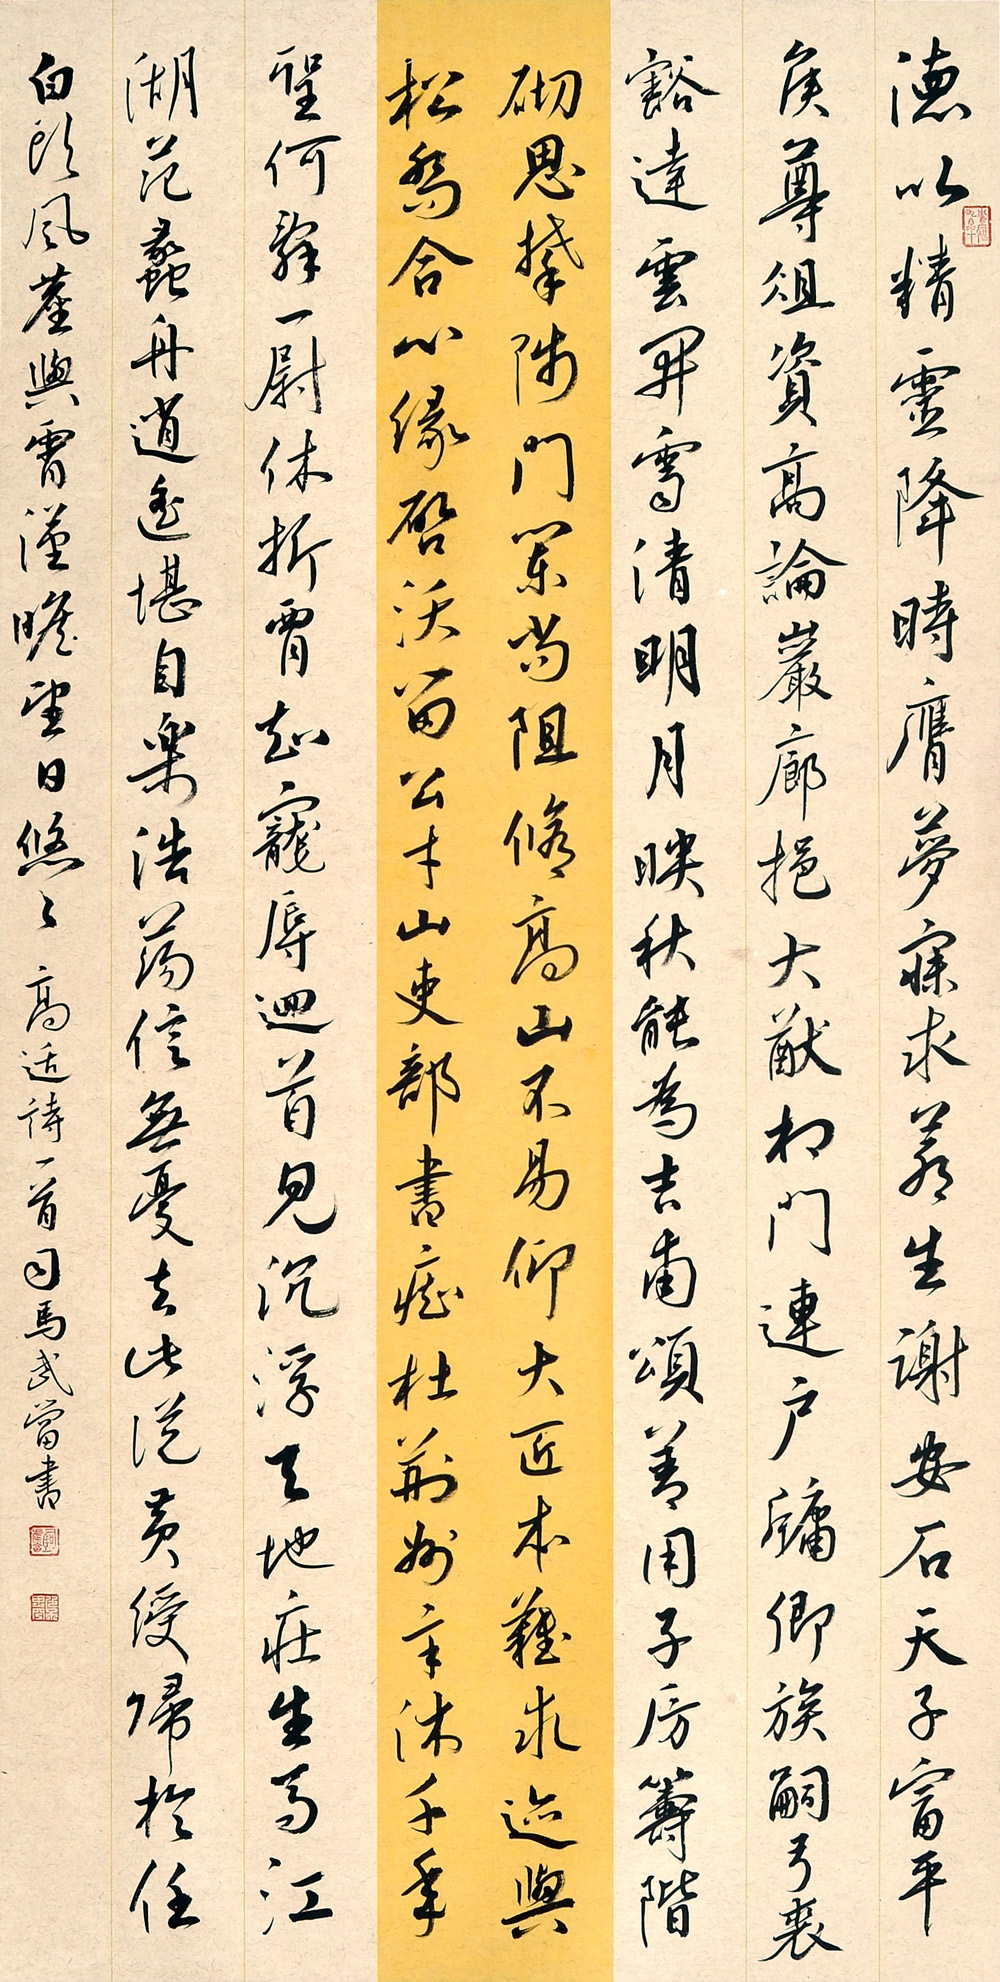 德以精靈降時膺夢寐求蒼生謝安石天子富平
侯尊俎資高論巖廊挹大猷相門連戶牖卿族嗣弓裘
豁達雲開霽清明月映秋能為吉甫頌善用子房籌階
砌思攀陟門闌尚阻脩高山不易仰大匠本難求迹與
松喬合心緣啓沃留公才山吏部書癖杜荊州幸沐千年
聖何辭一尉休折腰知寵辱迴首見沉浮天地莊生馬江
湖范蠡舟逍遙堪自樂浩蕩信無憂去此從黃綬歸於任
白頭風塵與霄漢瞻望日悠〻 高适詩一首司馬武當書